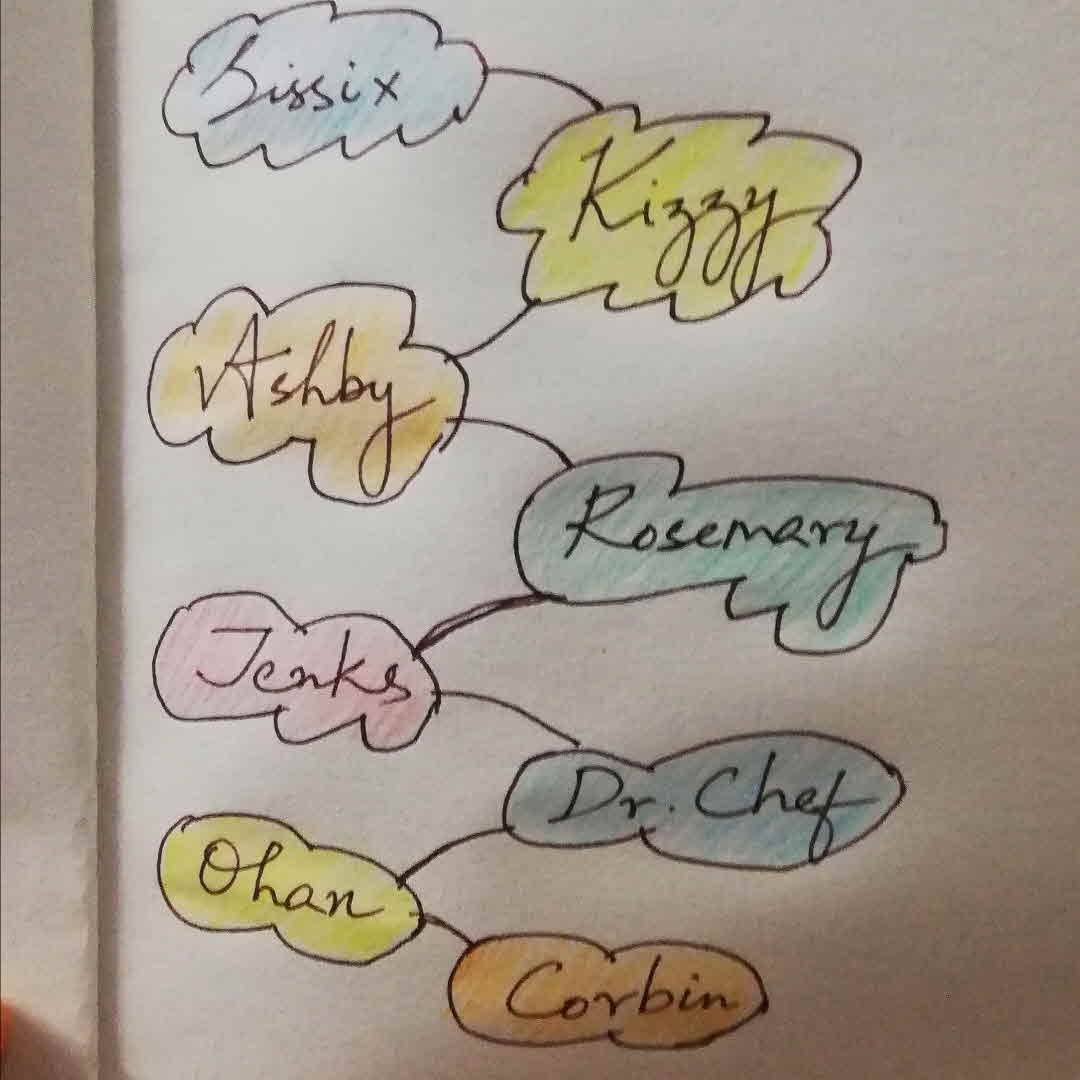 Bissix
Kizzy
Ashby
Rosemary
Jenks
Dr. Chef
Ohan
Corbin